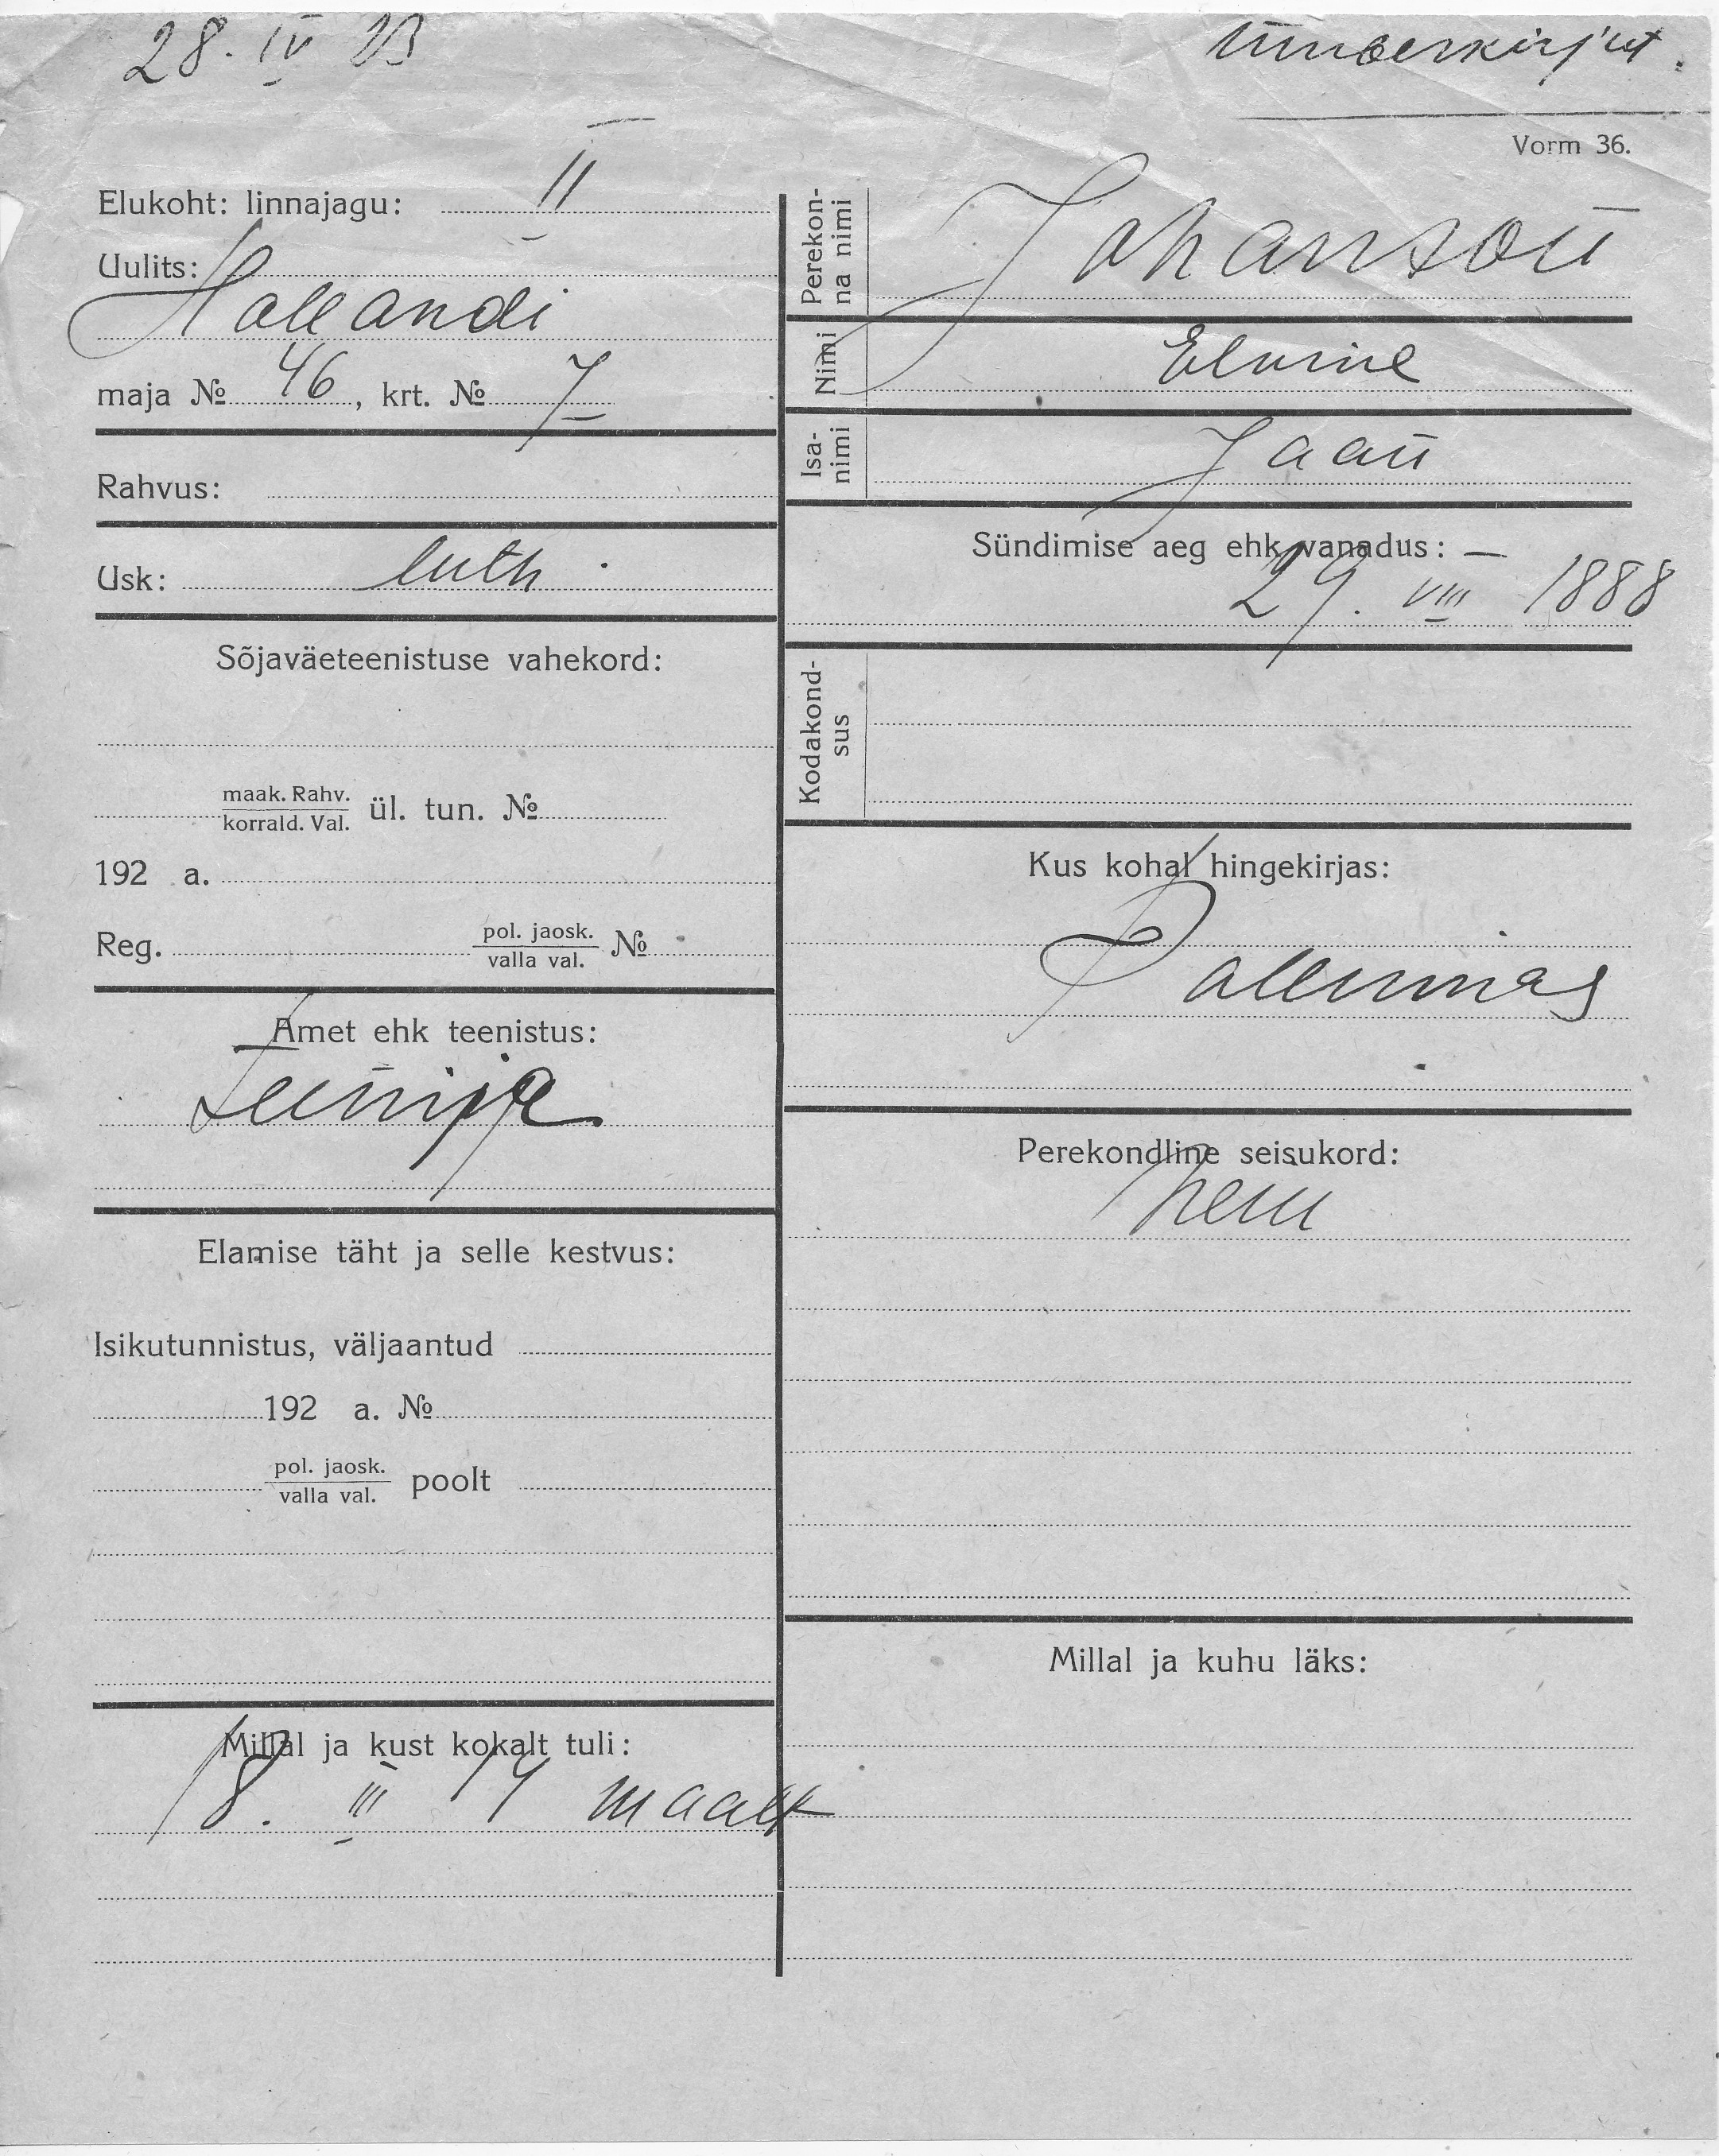 28. IV 23
ümberkirjut.
Vorm 36.
Elukoht: linnajagu: II
Uulits:
Hollandi
maja № 46, krt. № 7
Rahvus:
Usk: luth.
Sõjaväeteenistuse vahekord:
maak. Rahv.
korrald. Val. ül. tun. №
192 a.
Reg. pol. jaosk.
valla val. №
Amet ehk teenistus:
Teenija
Elamise täht ja selle kestvus:
Isikutunnistus, väljaantud
192 a. №
pol. jaosk.
valla val. poolt
Millal ja kust kokalt tuli:
18. III 14 maalt
Perekon-
na nimi Johanson
Nimi Elvine
Isa-
nimi Jaan
Sündimise aeg ehk vanadus: —
29. VIII 1888
Kodakond-
sus
Kus kohal hingekirjas:
Perekondline seisukord:
Millal ja kuhu läks: